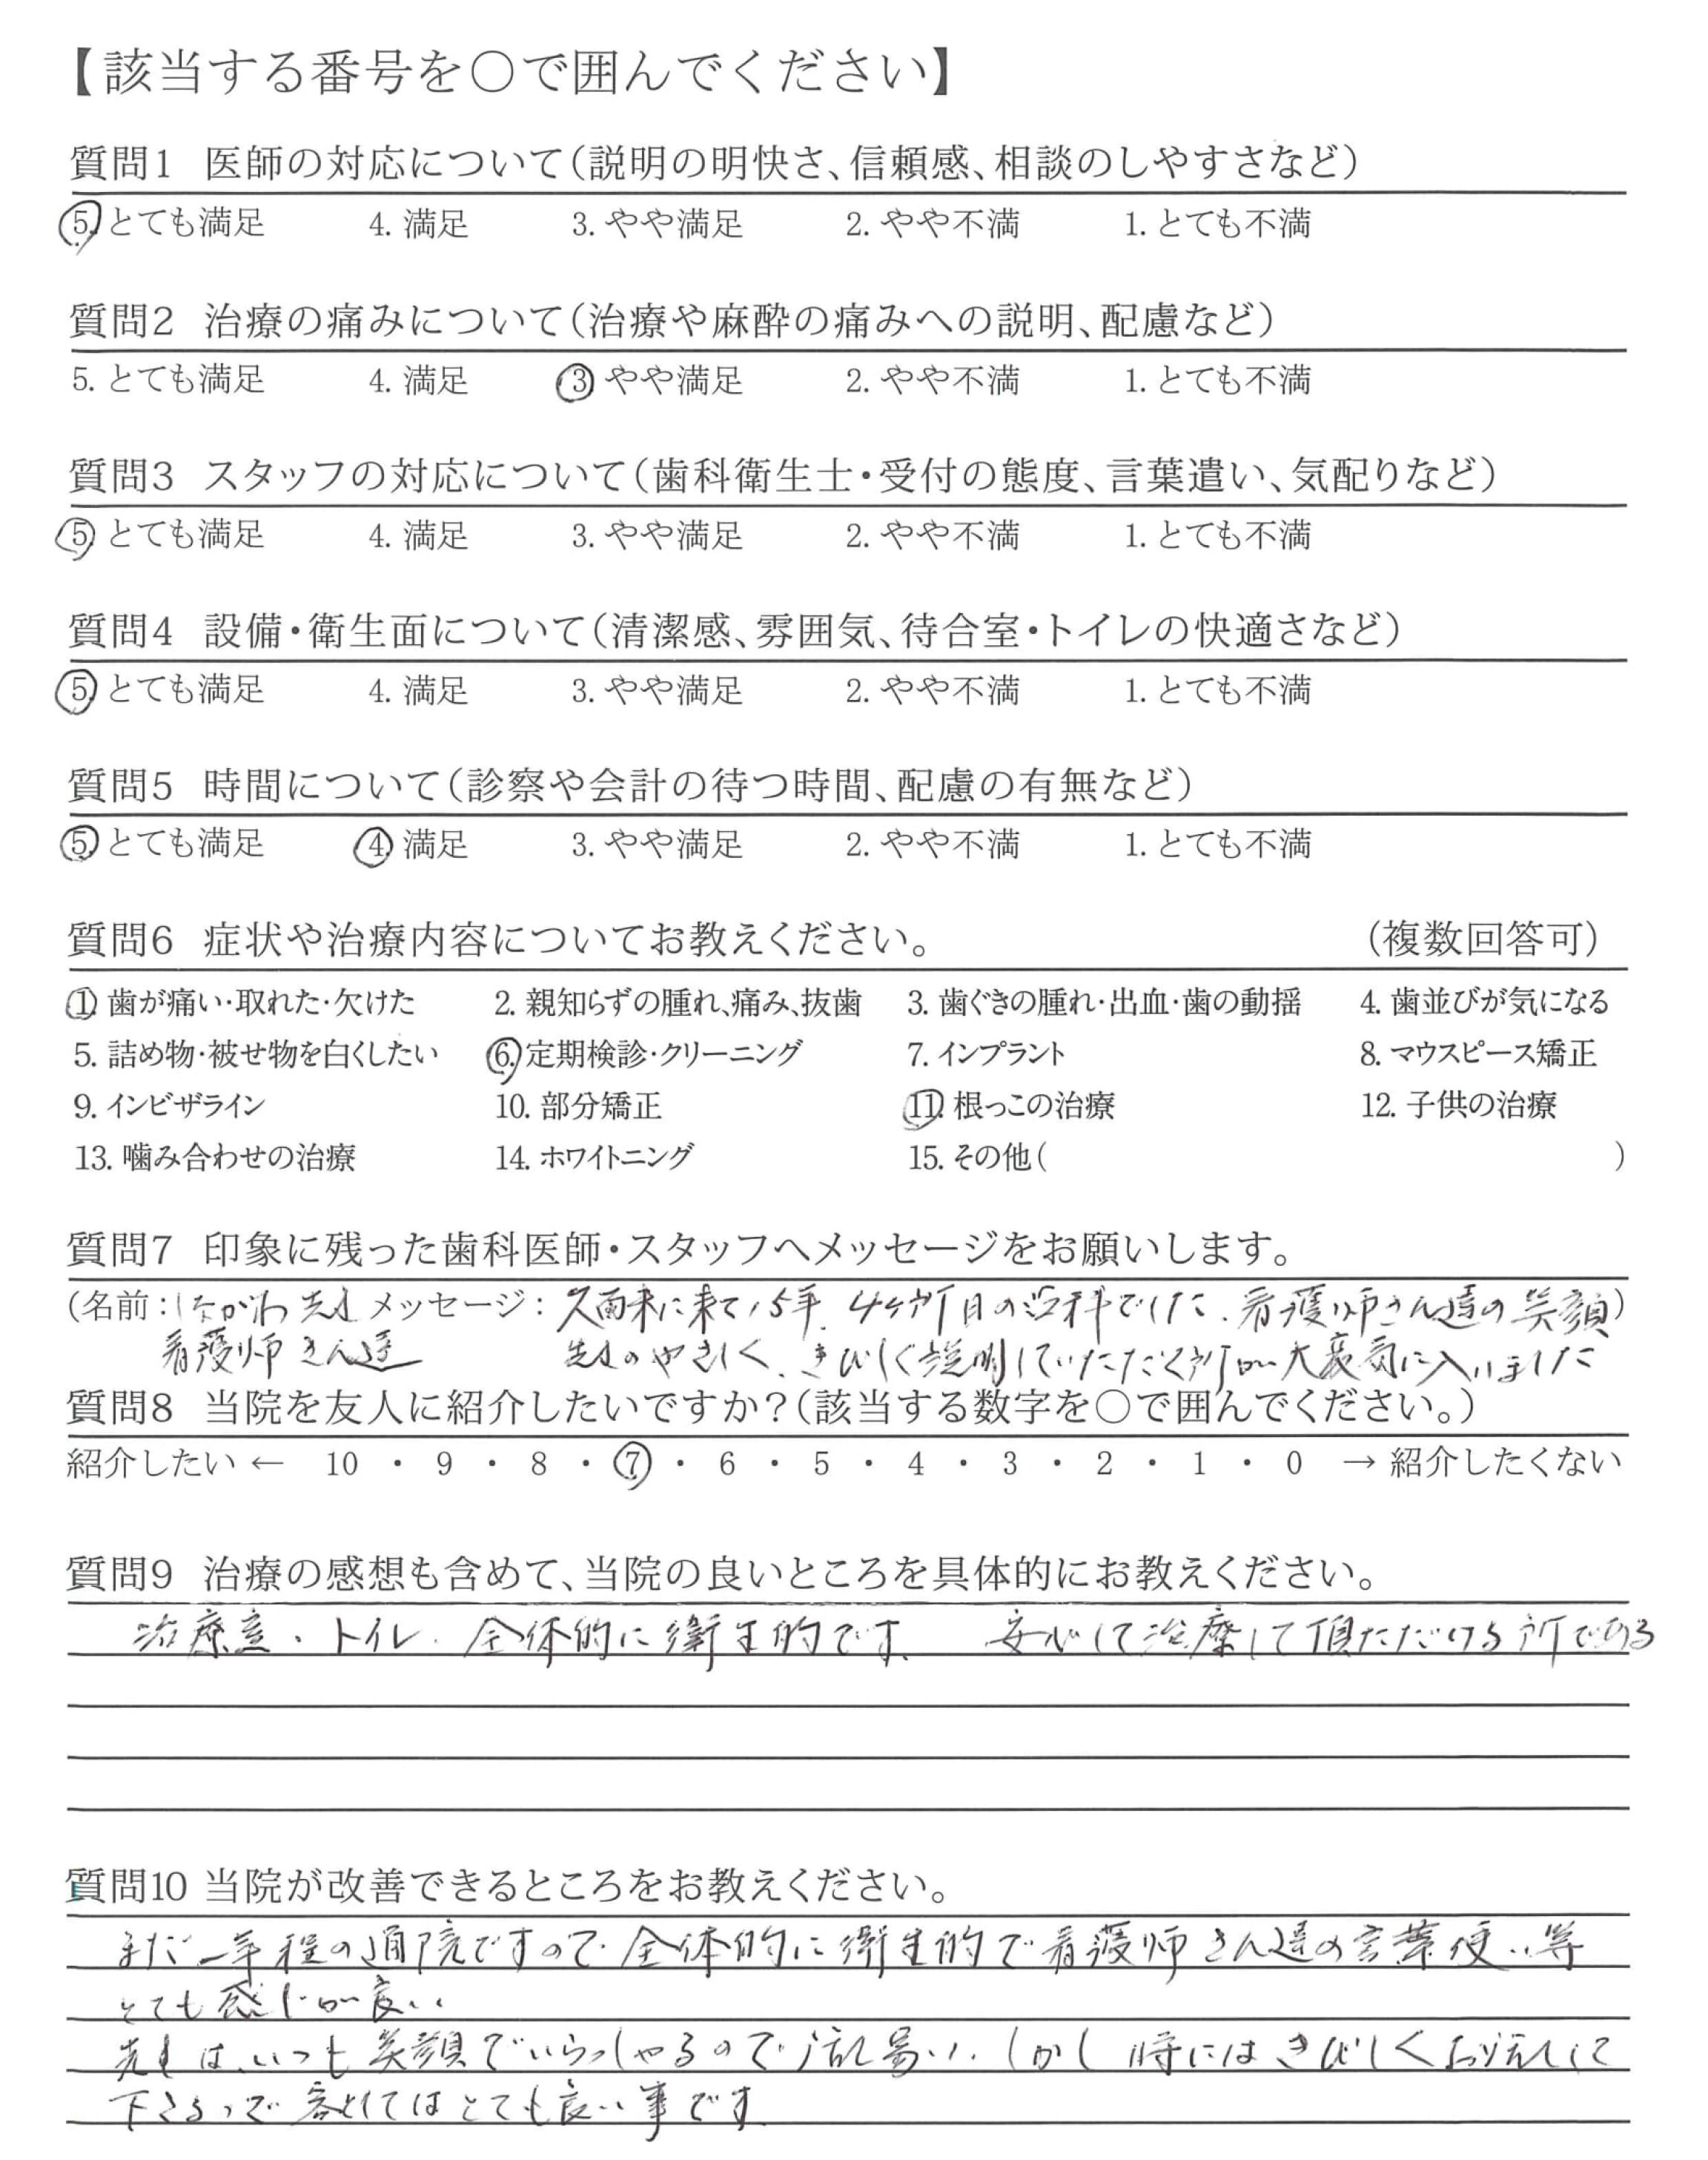 【該当する番号を〇で囲んでください】
質問1 医師の対応について（説明の明快さ、信頼感、相談のしやすさなど）
5. とても満足 4. 満足 3. やや満足 2. やや不満 1. とても不満
質問2 治療の痛みについて（治療や麻酔の痛みへの説明、配慮など）
5. とても満足 4. 満足 3. やや満足 2. やや不満 1. とても不満
質問3 スタッフの対応について（歯科衛生士・受付の態度、言葉遣い、気配りなど）
5. とても満足 4. 満足 3. やや満足 2. やや不満 1. とても不満
質問4 設備・衛生面について（清潔感、雰囲気、待合室・トイレの快適さなど）
5. とても満足 4. 満足 3. やや満足 2. やや不満 1. とても不満
質問5 時間について（診察や会計の待つ時間、配慮の有無など）
5. とても満足 4. 満足 3. やや満足 2. やや不満 1. とても不満
質問6 症状や治療内容についてお教えください。 （複数回答可）
1. 歯が痛い・取れた・欠けた 2. 親知らずの腫れ、痛み、抜歯 3. 歯ぐきの腫れ・出血・歯の動揺 4. 歯並びが気になる
5. 詰め物・被せ物を白くしたい 6. 定期検診・クリーニング 7. インプラント 8. マウスピース矯正
9. インビザライン 10. 部分矯正 11. 根っこの治療 12. 子供の治療
13. 噛み合わせの治療 14. ホワイトニング 15. その他（ ）
質問7 印象に残った歯科医師・スタッフへメッセージをお願いします。
（名前：しながわ先生 メッセージ：久留米に来て15年、4ヶ所目の歯科でした。看護師さん達の笑顔）
看護師さん達 先生のやさしく、きびしく説明していただく所が大変気に入いました
質問8 当院を友人に紹介したいですか？（該当する数字を〇で囲んでください。）
紹介したい ← 10 ・ 9 ・ 8 ・ 7 ・ 6 ・ 5 ・ 4 ・ 3 ・ 2 ・ 1 ・ 0 → 紹介したくない
質問9 治療の感想も含めて、当院の良いところを具体的にお教えください。
治療室・トイレ・全体的に衛生的です、 安心して治療して頂ただける所である
質問10 当院が改善できるところをお教えください。
まだ一年程の通院ですので全体的に衛生的で看護師さん達の言葉使い等
とても感じが良い
先生は、いつも笑顔でいらっしゃるので話し易い、しかし時にはきびしくお話しして
下さるので 客としてはとても良い事です